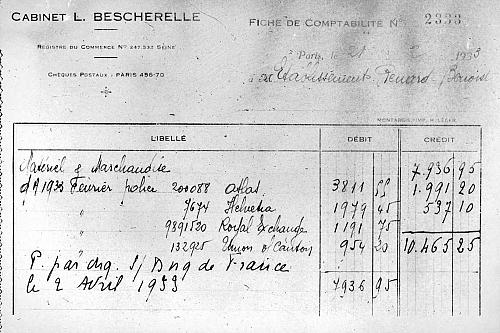 CABINET L. BESCHERELLE
FICHE DE COMPTABILITÉ N° 2333
REGISTRE DU COMMERCE N° 247.532 SEINE
à Paris, le 21 2 1933
CHÈQUES POSTAUX : PARIS 456-70
Etablissement
MONTARGIS, IMP. H. LÉGER.
LIBELLÉ DÉBIT CRÉDIT
Matériel & Marchandise 7.936 95
1933 Février police 201088 Atlas 3811 55 1.991 20
" " 7674 Helvetia 1979 45 537 10
" 9391520 Royal Exchange 1191 75
132925 Union & Canton 954 20 10.465 25
P. par chq. s/ Bnq de France
le 2 Avril 1933 7936 95